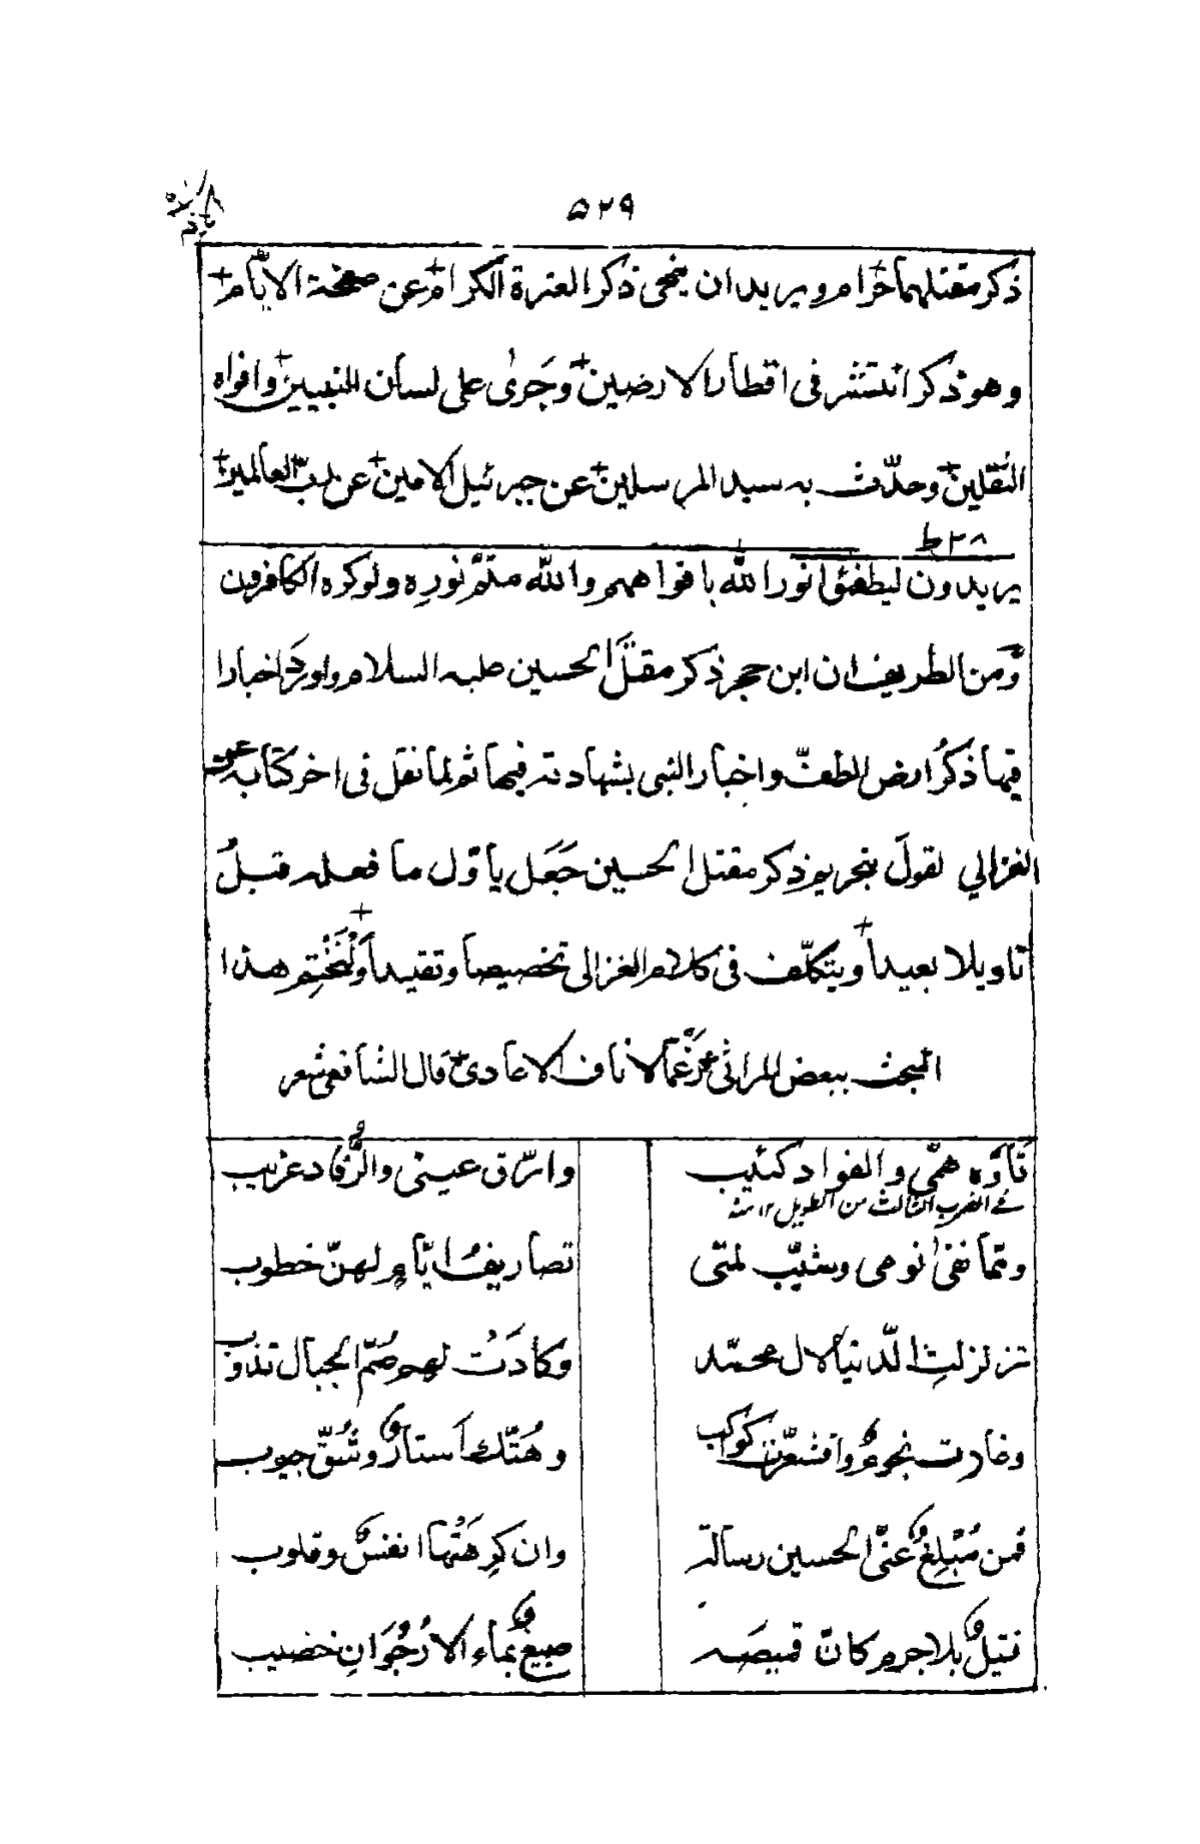 ٥٢٩
ذكر مقتلهما حرام ويريد ان ينمحى ذكر العترة الكرام عن صفحة الايام
وهو ذكر انتشر فى اقطار الارضين وَجَرىٰ على لسان النبيين وافواه
الثقلين وحدّث به سيد المرسلين عن جبرئيل الامين عن ربّ العالمين
٢٨ ط
يريدون ليطفئوا نور الله بافواههم والله متمّ نورِه ولو كره الكافرون
ومن الطريف ان ابن حجر ذكر مقتلَ الحسين عليه السلام واورَدَ اخبارا
فيها ذكرُ ارض الطفّ واخبار النبى بشهادته فيها ثم لما نقل فى اخر كتابه عن
الغزالي لقولَ بتحريم ذكر مقتل الحسين جَعَل ياوّل ما فعله قبلُ
تاويلا بعيداً ويتكلّف فى كلام الغزالى تخصيصاً وتقيداً ولْنَخْتِم هذا
المبحث ببعض المراثى رَغْماً لاناف الاعادى قال الشافعى شعر
تَاَوَّه همّي والفواد كئيب وارّق عينى والرُّقاد غريب
فے الضرب الثالث من الطويل ١٢ منه
وممّا نفىٰ نومى وشيّب لمتى تصاريفُ ايّامٍ لهنّ خطوب
تزلزلتِ الدّنيا لاٰل محمّد وكادَتْ لهم صُمّ الجبال تذوب
وغارت نجومٌ واقشعرّت كواكب وهُتّك اَستارٌ وشُقّ جيوب
فمن مُبْلِغٌ عنّى الحسين رسالة وان كرِهَتْها انفسٌ وقلوب
قتيلٌ بلا جرم كانّ قميصَه صبيغٌ بماء الارُجُوَانِ خضيب